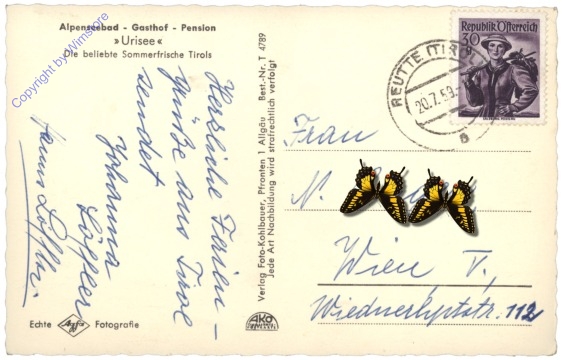 Alpenseebad - Gasthof - Pension
»Urisee«
Die beliebte Sommerfrische Tirols
Copyright by Wimstore
Herzliche Ferien-
grüße aus Tirol
sendet
Johanna
Löffler
Hanns Löffler
Echte Agfa Fotografie
Verlag Foto-Kohlbauer, Pfronten 1 Allgäu Best.-Nr. T 4789
Jede Art Nachbildung wird strafrechtlich verfolgt
AKO
REUTTE (TIROL)
20.7.59
a
Republik Österreich
30
Frau
N.
Wien V,
112